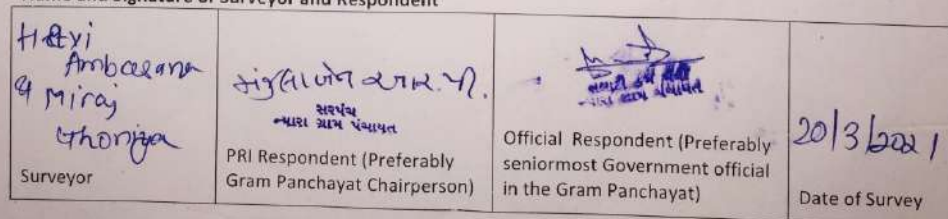 Name and Signature of Surveyor and Respondent
Ambasana
& Miraj
Ghoniya
Surveyor
મંજુલાબેન આર. પી.
સરપંચ
ન્યારા ગ્રામ પંચાયત
PRI Respondent (Preferably
Gram Panchayat Chairperson)
ન્યારા ગ્રામ પંચાયત
Official Respondent (Preferably
seniormost Government official
in the Gram Panchayat)
20/3/2021
Date of Survey